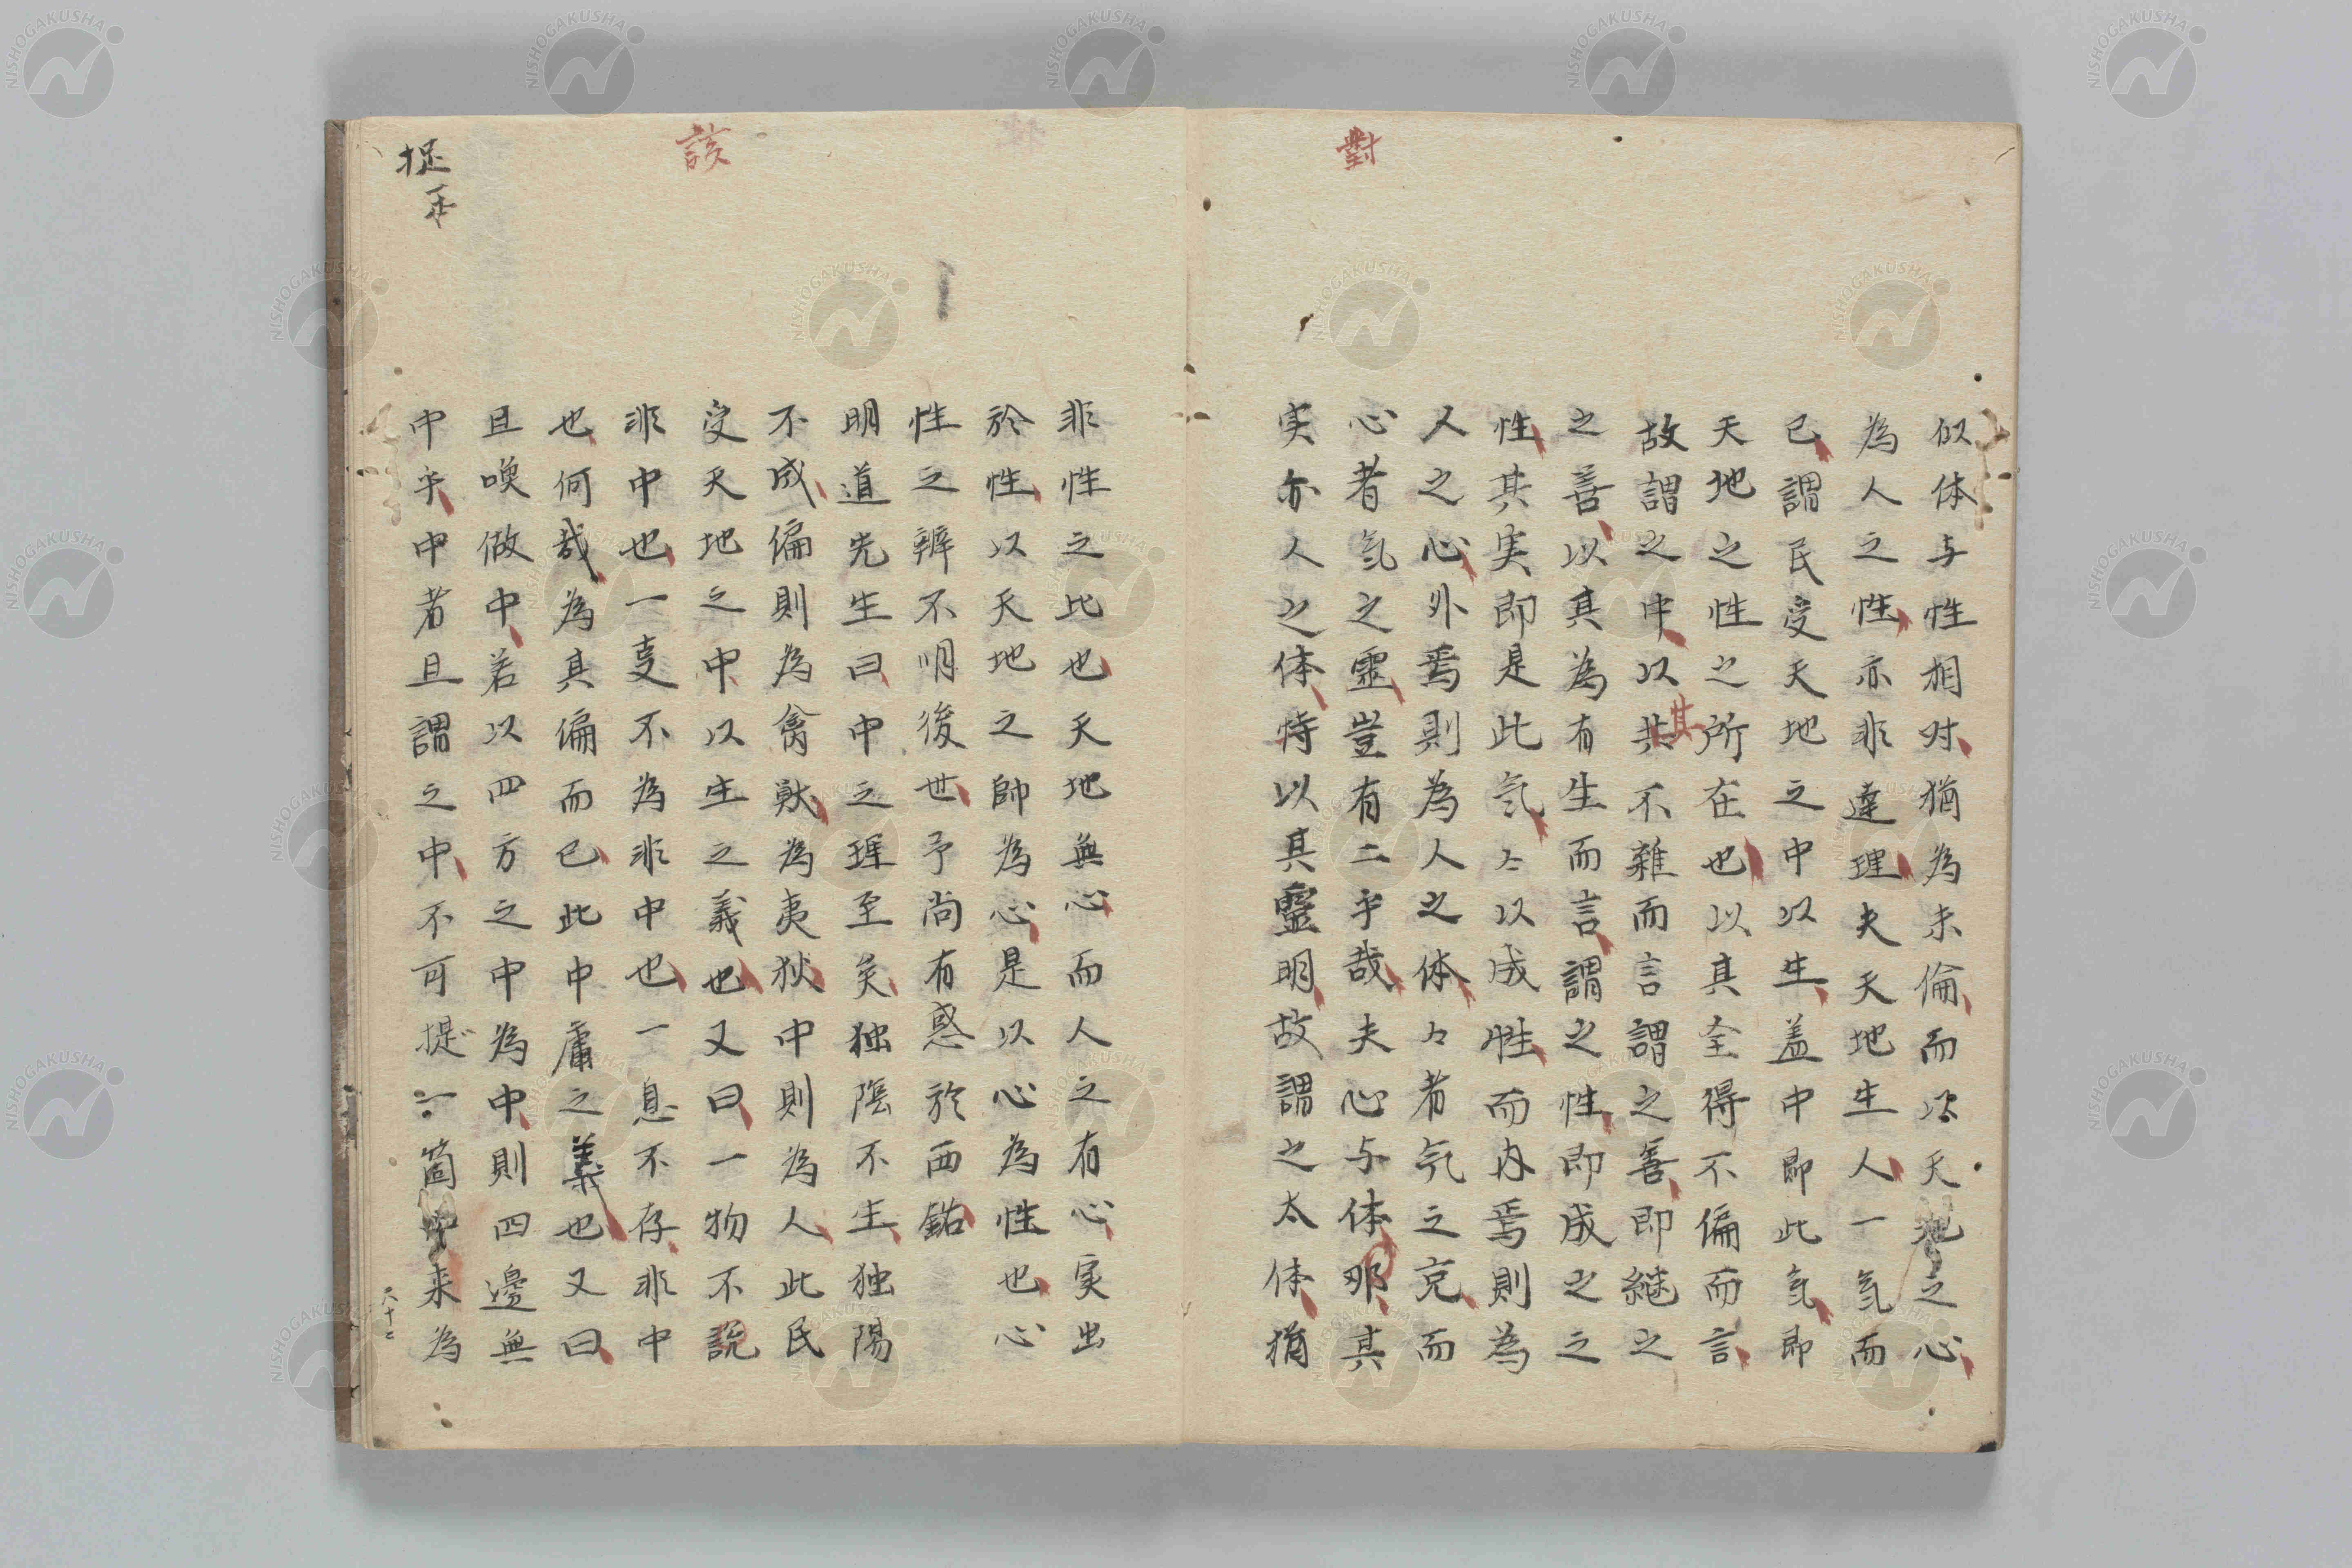 對
似体与性相対猶為未倫而以天地之心
為人之性亦非達理夫天地生人一気而
已謂民受天地之中以生盖中即此気即
天地之性之所在也以其全得不偏而言
故謂之中以共不雜而言謂之善即継之
其
之善以其為有生而言謂之性即成之之
性其実即是此気々以成性而内焉則為
人之心外焉則為人之体々者気之充而
心者気之靈豈有二乎哉夫心与体耶其
実亦人之体特以其靈明故謂之太体猶
非性之比也天地無心而人之有心実出
於性以天地之帥為心是以心為性也心
性之辨不明後世予尚有惑於西銘
明道先生曰中之理至矣独陰不生独陽
不成偏則為禽獣為夷狄中則為人此民
受天地之中以生之義也又曰一物不該
該
非中也一㕝不為非中也一息不存非中
也何哉為其偏而已此中庸之義也又曰
且喚做中若以四方之中為中則四邊無
中乎中者且謂之中不可提一箇中来為
捉
六十二
NISHOGAKUSHA